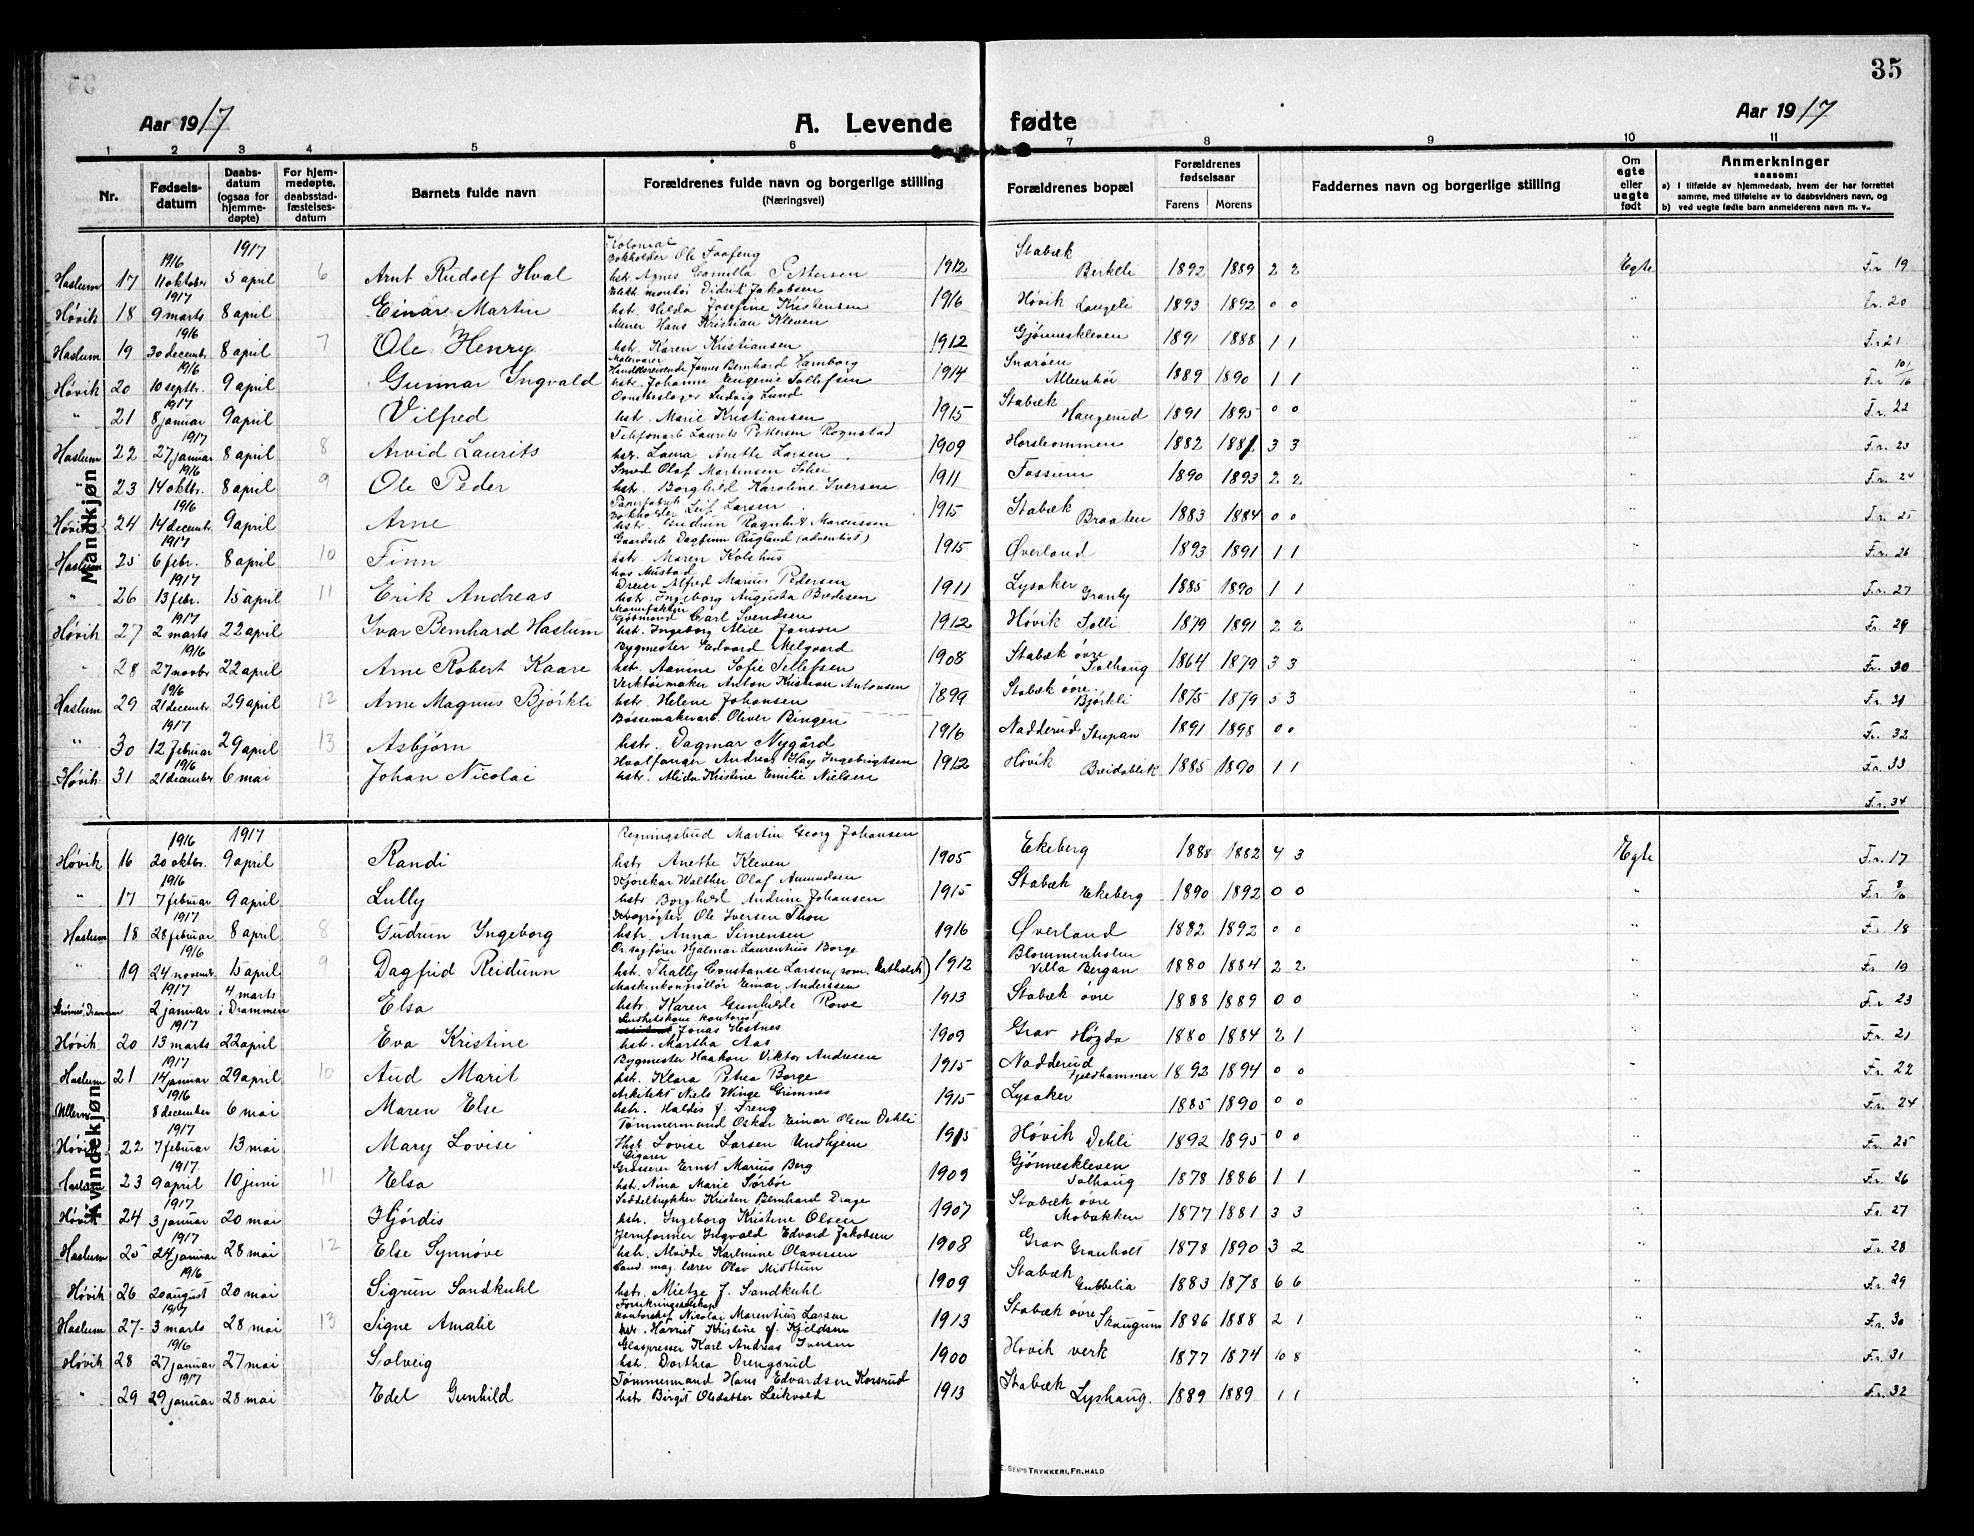 35
Aar 1917
A. Levende fødte
Aar 1917
1 2 3 4 5 6 7 8 9 10 11
Nr.
Fødsels-datum
Daabs-datum (ogsaa for hjemme-døpte)
For hjem-medøpte, daabsstad-fæstelses-datum
Barnets fulde navn
Forældrenes fulde navn og borgerlige stilling (Næringsvei)
Forældrenes bopæl
Forældrenes fødselsaar
Farens Morens
Faddernes navn og borgerlige stilling
Om egte eller uegte født
Anmerkninger saasom:
a) I tilfælde av hjemmedaab, hvem der har forrettet samme, med tilføielse av to daabsvidners navn, og
b) ved uegte fødte barn anmelderens navn m. v.
Mandkjøn
1916 1917 Kolonial
Haslum 17 11 oktober 5 april 6 Arnt Rudolf Hval Bokholder Ole Faafeng hstr. Agnes Camilla Pettersen 1912 Stabæk Birkeli 1892 1889 2 2 Egte Fr 19
1917
Høvik 18 9 marts 8 april Einar Martin Elekt. montør Didrik Jakobsen hst. Hilda Josefine Kristensen 1916 Høvik Laugeli 1893 1892 0 0 " Fr. 20
1916
Haslum 19 30 decembr. 8 april 7 Ole Henry Murer Hans Kristian Kleven hstr. Karen Kristiansen 1912 Gjønneskleven 1891 1888 1 1 " Fr 21
1916
Høvik 20 10 septbr. 9 april Gunnar Ingvald Handelsreisende James Bernhard Hamborg hstr. Johanne Eugenie Tollefsen 1914 Snarøen 1889 1890 1 1 " Fr. 10/16
1917
" 21 8 januar 9 april Vilfred Ludvig Lund hst. Marie Kristiansen 1915 Stabæk Haugerud 1891 1895 0 0 " Fr. 22
1917
Haslum 22 27 januar 8 april 8 Arvid Laurits Telefonarb. Laurits Pettersen Rognstad hst. Laura Anette Larsen 1909 1882 1881 3 3 " Fr. 23
1916
" 23 14 oktbr. 8 april 9 Ole Peder Smed Olaf Martinsen hst. Borghild Karoline Iversen 1911 Fossum 1890 1893 2 2 " Fr. 24
1916
Høvik 24 14 decembr. 9 april Arne Papirfabrik Bokholder Leif Larsen hst. Gudrun Ragnhild Marcussen 1915 Stabæk Braaten 1883 1884 0 0 " Fr. 25
1917
Haslum 25 6 febr. 8 april 10 Finn Gaardarb. Dagfinn Rugland (adventist) hst. Maren Kolshus 1915 Øverland 1893 1891 1 1 " Fr. 26
1917
" 26 13 febr. 15 april 11 Erik Andreas hos Mustad Dreier Alfred Marius Pedersen hst. Ingeborg Augusta Bredesen 1911 Lysaker Granly 1885 1890 1 1 " Fr. 27
1917
Høvik 27 2 marts 22 april Ivar Bernhard Haslum Carl Svendsen hst. Ingeborg Alice Jonson 1912 Høvik Solli 1879 1891 2 2 " Fr. 29
1916
" 28 27 novbr 22 april Arne Robert Kaare Bygmester Edvard Melgaard hst. Aanine Sofie Tellefsen 1908 Stabæk øvre Solhaug 1864 1879 3 3 " Fr. 30
1916
Haslum 29 21 decembr. 29 april 12 Arne Magnus Bjørkli Verktøimaker Anton Kristian Antonsen hst. Helene Johansen 1899 Stabæk øvre Bjørkli 1875 1879 5 3 " Fr. 31
1917
" 30 12 februar 29 april 13 Asbjørn Bøssemakerarb. Oliver Bingen hstr. Dagmar Nygård 1916 Nadderud Stupan 1891 1898 0 0 " Fr. 32
1916
Høvik 31 21 december 6 mai Johan Nicolai Hvalfanger Andreas Hay Ingebrigtsen hst. Alida Kristine Emilie Nielsen 1912 Høvik Breidablik 1885 1890 1 1 " Fr. 33
Fr. 34
Kvindekjøn
1916 1917
Høvik 16 20 oktbr. 9 april Randi Regningsbud Martin Georg Johansen hstr Anette Kleven 1905 Ekeberg 1888 1882 4 3 Egte Fr. 17
1916
" 17 7 februar 9 april Lully Walther Olaf Amundsen hstr Borghild Andrine Johansen 1915 Stabæk Ekeberg 1890 1892 0 0 " Fr. 8/16
1917
Haslum 18 28 februar 8 april 8 Gudrun Ingeborg Ole Iversen Thon hstr. Anna Simensen 1916 Øverland 1882 1892 0 0 " Fr. 18
1916
" 19 24 novembr. 15 april 9 Dagfrid Reidunn Or. sagfører Hjalmar Laurentius Borge hst. Thally Constanse Larsen (rom. katholsk) 1912 Blommenholm Villa Bergan 1880 1884 2 2 " Fr. 19
1917
Strømsø, Drammen 2 januar 4 marts i Drammen Elsa Maskinkontrollør Einar Anderssen hstr. Karen Gunhilde Rowe 1913 Stabæk øvre 1888 1889 0 0 " Fr 23
1917
Høvik 20 13 marts 22 april Eva Kristine kontorist Jonas Hestnes hst. Martha Aas 1909 Grav Høgda 1880 1884 2 1 " Fr. 21
1917
Haslum 21 14 januar 29 april 10 Aud Marit Bygmester Haakon Viktor Andresen hst. Klara Petrea Borge 1915 Nadderud Fjeldhammer 1892 1894 0 0 " Fr. 22
1916
Ullern 8 december 6 mai Maren Else Arkitekt Niels Winge Grimnes hstr. Haldis f. Freng 1915 Lysaker 1885 1890 0 0 " Fr. 24
1917
Høvik 22 7 februar 13 mai Mary Lovise Tømmermand Oskar Einar Olsen Dehli Hst. Lovise Larsen Undhjem 1915 Høvik Dehli 1892 1895 0 0 " Fr. 25
1917
Haslum 23 9 april 10 juni 11 Elsa Cigarer Grosserer Ernst Marius Berg hst. Nina Marie Sørbøe 1909 Gjønneskleven Solhaug 1878 1886 1 1 " Fr. 26
1917
Høvik 24 3 januar 20 mai Hjørdis Seddeltrykker Kristen Bernhard Drage hstr. Ingeborg Kristine Olsen 1907 Stabæk øvre Mobakken 1877 1881 3 3 " Fr. 27
1917
Haslum 25 24 januar 28 mai 12 Else Synnøve Jernformer Ingvald Edvard Jakobsen hst. Alvilde Karlmine Olavesen 1908 Grav Granholt 1878 1890 3 2 " Fr. 28
1916
Høvik 26 20 august 20 mai Sigrun Sandkuhl Cand. mag. lærer Olav Midttun hstr. Mietze f. Sandkuhl 1909 Stabæk Gubbelia 1883 1878 6 6 " Fr. 29
1917
Haslum 27 3 marts 28 mai 13 Signe Amalie Forsikringsselskap kontorchef Nicolai Marentius Larsen hstr. Harriet Kristine f. Kjeldsen 1913 Stabæk øvre Skaugum 1886 1888 2 1 " Fr. 30
1916
Høvik 28 27 januar 27 mai Solveig Glaspresser Karl Andreas Iversen hst. Dorthea Drengsrud 1900 Høvik verk 1877 1874 10 8 " Fr. 31
1917
" 29 29 januar 28 mai Edel Gunhild Tømmermand Hans Edvardsen Korsrud hstr Birgit Olsdatter Leikvold 1913 Stabæk Lyshaug. 1889 1889 1 1 " Fr. 32
E. SEM'S TRYKKERI, FR.HALD